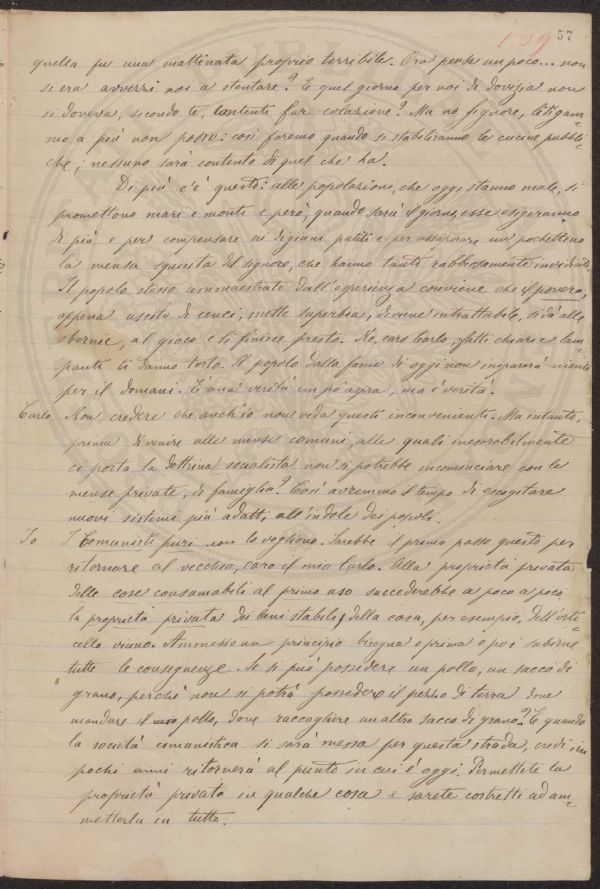 109 57
quella fu una mattinata proprio terribile. Ora pensa un poco... non
si era avvezzi noi a stentare? E quel giorno per noi di dovizia non
si doveva, secondo te, contenti far colazione? Ma no signore, litigava=
mo a più non posso: così faremo quando si stabiliranno le cucine pubbli=
che; nessuno sarà contento di quel che ha.
Di più c'è questo: alle popolazioni, che oggi stanno male, si
promettono mari e monti e però, quando sarà il giorno, esse esigeranno
di più e per compensare i digiuni patiti e per assaporare un pochettino
la mensa squisita del signore, che hanno tanto rabbiosamente invidiato.
Il popolo stesso ammaestrato dall'esperienza conviene che il povero,
appena uscito di cenci, mette superbia, diviene intrattabile, si dà alle
sbornie, al gioco e lì finisce presto. No, caro Carlo, fatti chiari e lam=
panti ti danno torto. Il popolo dalla fame di oggi non imparerà niente
per il domani. È una verità un po' aspra, ma è verità.
Carlo Non credere che anch'io non veda questi inconvenienti. Ma intanto,
prima di venire alle mense comuni, alle quali inesorabilmente
ci porta la dottrina socialista non si potrebbe incominciare con le
mense private, di famiglia? Così avremmo il tempo di escogitare
nuovi sistemi più adatti all'indole dei popoli.
Io I Comunisti puri non lo vogliono. Sarebbe il primo passo questo per
ritornare al vecchio, caro il mio Carlo. Alla proprietà privata
delle cose consumabili al primo uso succederebbe a poco a poco
la proprietà privata dei beni stabili, della casa, per esempio, dell'orti=
cello vicino. Ammesso un principio bisogna o prima o poi subirne
tutte le conseguenze. Se si può possedere un pollo, un sacco di
grano, perchè non si potrà possedere il pezzo di terra dove
mandare il pollo, dove raccogliere un altro sacco di grano? E quando
la società comunistica si sarà messa per questa strada, credi in
pochi anni ritornerà al punto in cui è oggi. Permettete la
proprietà privata in qualche cosa e sarete costretti ad am=
metterla in tutto.